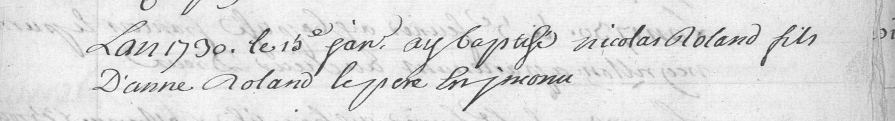 Lan 1730. le 15e janr. ay baptisé nicolas Roland fils
D'anne Roland le pere Injconu